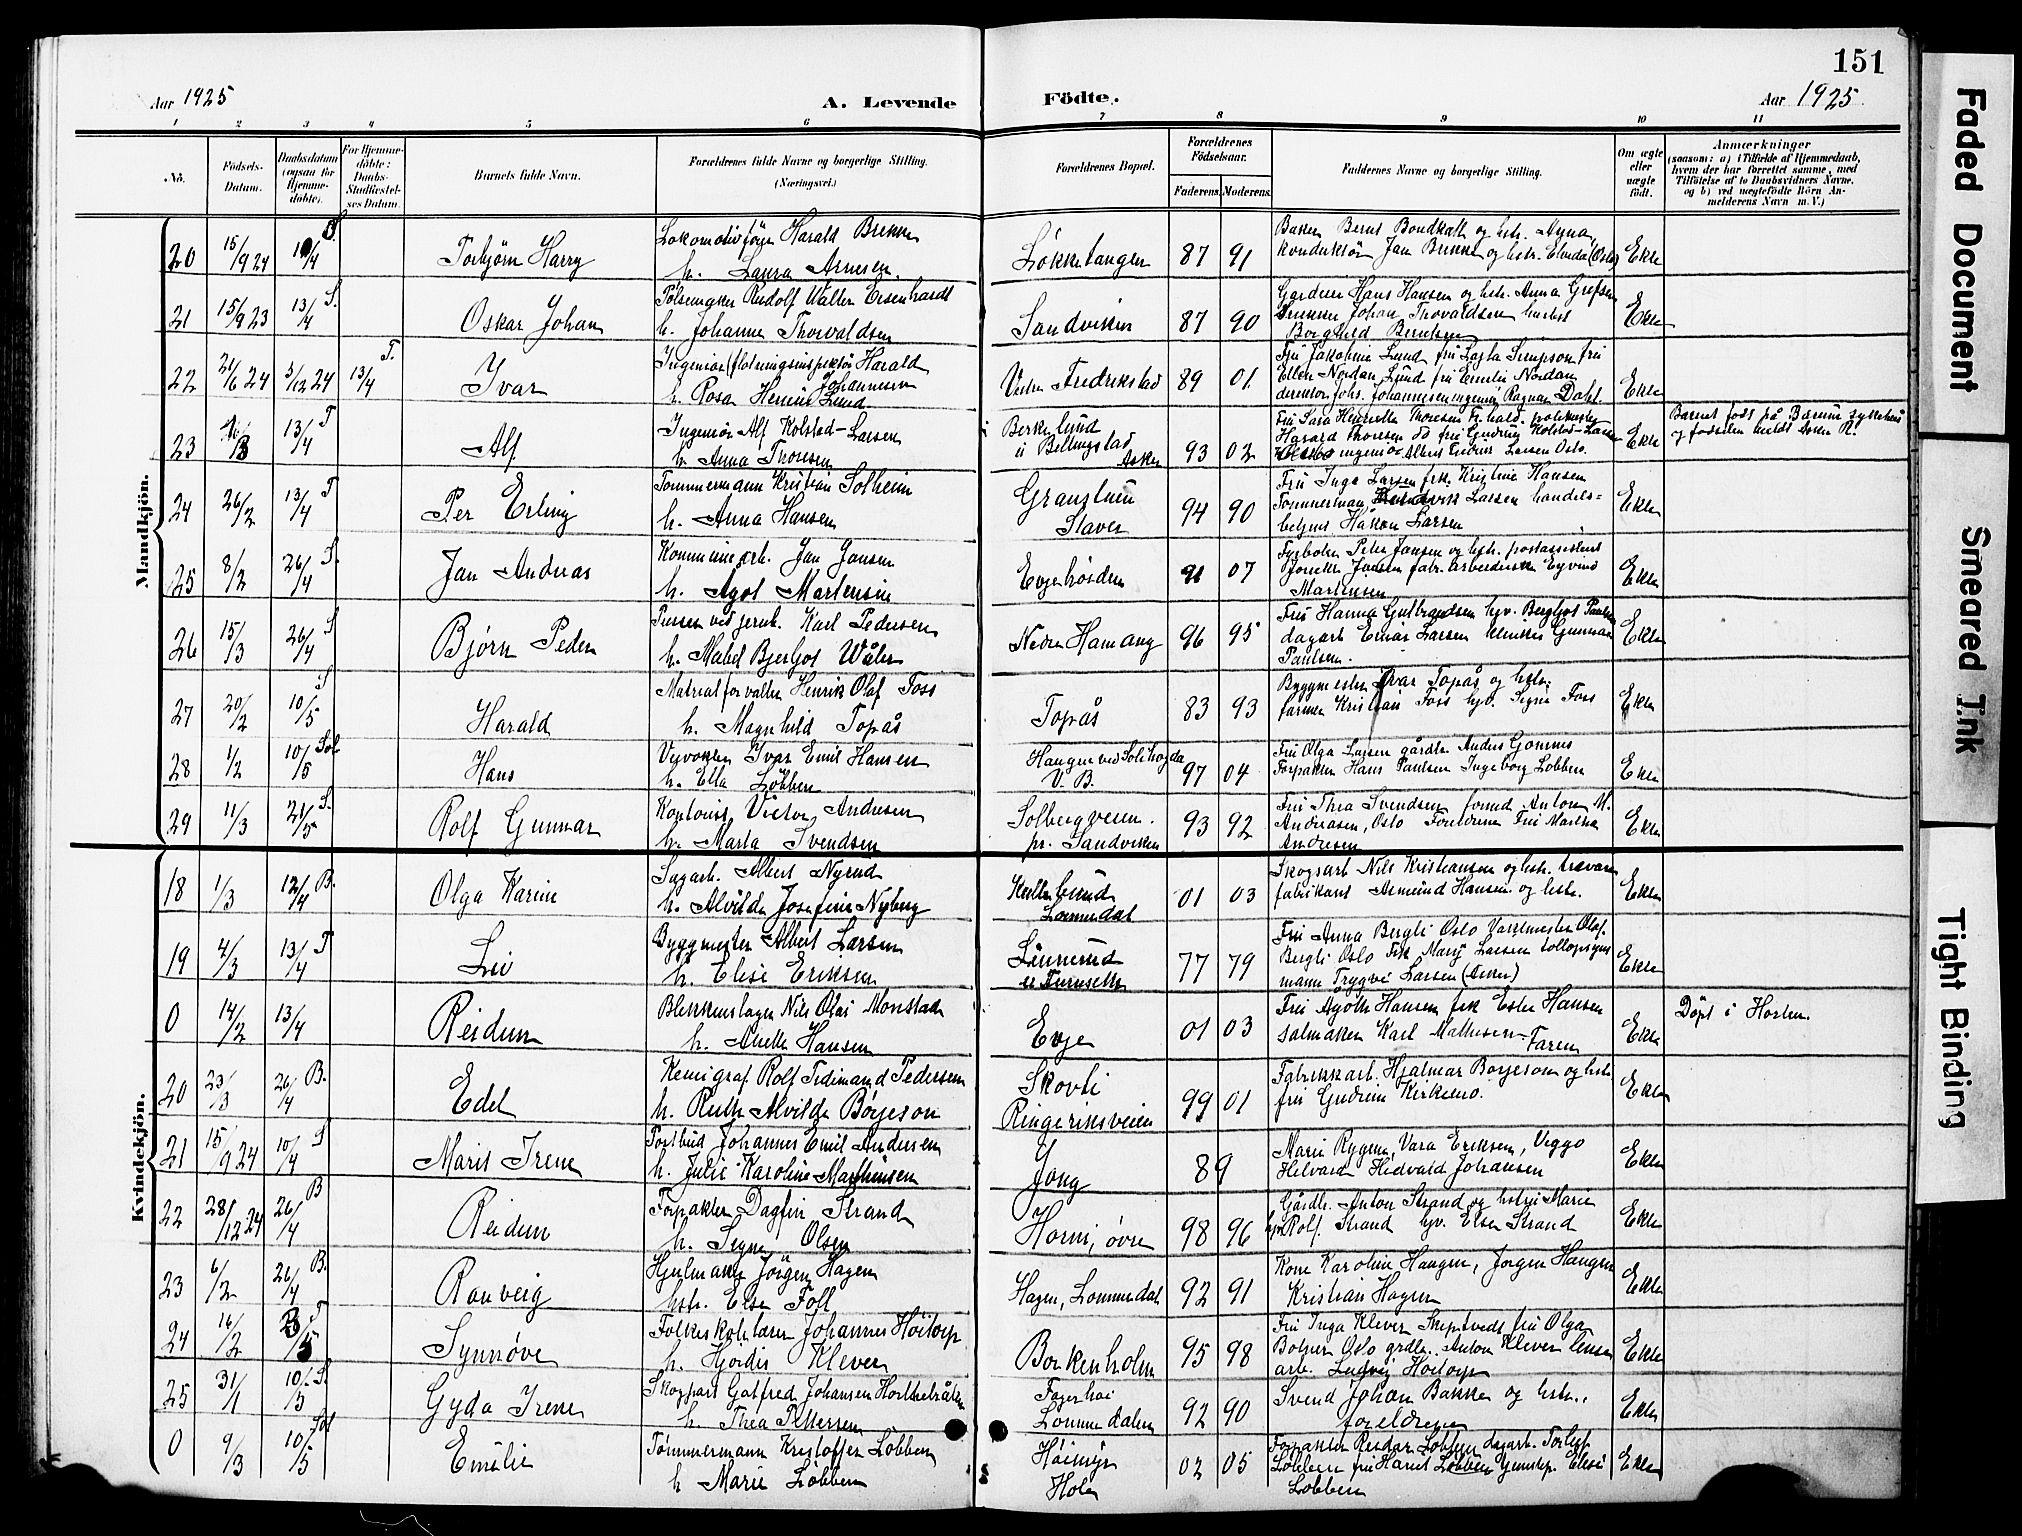 151
Aar 1925
A. Levende Födte.
Aar 1925
1 2 3 4 5 6 7 8 9 10 11
No.
Födsels-
Datum.
Daabsdatum
(ogsaa for
Hjemme-
döbte).
For Hjemme-
döbte:
Daabs-
Stadfæstel-
ses Datum.
Barnets fulde Navn.
Forældrenes fulde Navne og borgerlige Stilling.
(Næringsvei.)
Forældrenes Bopæl.
Forældrenes
Födselsaar.
Faderens. Moderens.
Faddernes Navne og borgerlige Stilling.
Om ægte
eller
uægte
födt.
Anmærkninger
(saasom: a) i Tilfælde af Hjemmedaab,
hvem der har forrettet samme, med
Tilföielse af to Daabsvidners Navne,
og b) ved uægtefödte Börn An-
melderens Navn m. V.)
Mandkjön.
20 15/9 24 Torbjörn Harry
Lokomotivförer Harald Brekke
h. Laura Arnesen.
Løkketangen 87 91
Ekte
21 15/9 23 13/4 S. Oskar Johan
Pølsemaker Rudolf Walter Eisenhardt
h. Johanne Thorvaldsen
Sandviken 87 90
Gardeier Hans Hansen og hstr. Anna Grefsen
Johan Thorvaldsen
Borghild Berntsen
Ekte
22 21/6 24 5/12 24 13/4 T. Ivar
Ingeniør (fløtningsinspektør Harald
Johannesen
h. Rosa Lund
Vestre Fredrikstad 89 01
Fru Jakobine Lund fru Simpson fru
Ellen Nordan Lund fru Emilie Nordan
direktør Johs. Johannesen ingeniør Ragnar Dahl.
Ekte
23 13/4 T Alf
Ingeniør Alf Kolstad-Larsen
h. Anna Thoresen
Berkelund
i Billingstad
Asker 93 02
Fru Sara Henriette Thoresen
Harald Thoresen fru Gudrun Kolstad-Larsen
ingeniør Albert Larsen Oslo.
Ekte
Barnet født på Bærum sykehus
og fødselen meldt Asker R.
24 26/2 13/4 T Per Erling
Tømmermann Kristian Solheim
h. Anna Hansen
Granslund
Slaver 94 90
Fru Inga Larsen frk. Kristine Hansen
Tømmerman Larsen handels-
betjent Håkon Larsen
Ekte
25 8/2 26/4 S. Jan Andreas
Kommunearb. Jan Jansen
h. Agot Martensen
Evjehøiden 91 07
Fyrbøter Peter Jansen og hstr. postassistent
Jansen fabr. arbeiderske Eyvind
Martensen
Ekte
26 15/3 26/4 S Bjørn Peder
Pusser ved jernb. Karl Pedersen
h. Mabel Bjerghot Wåler
Nedre Hamang 96 95
Fru Hanna Gulbrandsen hjv. Bergljot Paulsen
dagarb. Einar Larsen Gunnar
Paulsen.
Ekte
27 20/2 10/5 S Harald
Matrialforvalter Henrik Olaf Foss
h. Magnhild Topås
Topås 83 93
Byggmester Ivar Topås og hstr.
farmer Kristian Foss hjv. Signe Foss
Ekte
28 1/2 10/5 Sol Hans
Veivokter Ivar Emil Hansen
h. Ella Løbben
Haugen ved Solihøgda
V. B. 97 04
Fru Olga Larsen gårdbr. Anders
Forpakter Hans Paulsen Ingeborg Løbben
Ekte
29 11/3 21/5 S. Rolf Gunnar
Kontorist Victor Andresen
h. Marta Svendsen
Solbergveien.
pr. Sandviken 93 92
Fru Thea Svendsen Anton M.
Andreasen, Oslo Foreldrene Fru Martha
Andresen
Ekte
Kvindekjön.
18 1/3 12/4 B. Olga Karine
Sagarb. Albert Nyrud
h. Alvilde Josefine Nyberg
Lommedal 01 03
Skogsarb Nils Kristiansen og hstr. trævare
fabrikant Hansen og hstr.
Ekte
19 4/3 13/4 T Liv
Byggmester Albert Larsen
h. Elise Eriksen
77 79
Fru Anna Bergli Oslo Vaktmester Olaf
Bergli Oslo Frk Mary Larsen tollopsyns
mann Trygve Larsen (Asker)
Ekte
0 14/2 13/4 Reidun
Blikkenslager Nils Olai Monstad
h. Anette Hansen
Evje 01 03
Fru Agoth Hansen frk Ester Hansen
salmaker Karl Mathisen - Faren
Ekte
Døpt i Horten.
20 23/3 26/4 B. Edel
Kemigraf Rolf Ferdinand Pedersen
h. Ruth Alvilde Børjeson
Skovli
Ringeriksveien 99 01
Fabrikkarb. Hjalmar Børjeson og hstr.
fru Gudrun Kirkemo.
Ekte
21 15/9 24 10/4 S Marit Irene
Postbud Johannes Emil Andersen
h. Julie Karoline Mathiesen
Jong 89
Marie Rygen, Vara Eriksen, Viggo
Hedvald Johansen
Ekte
22 28/12 24 26/4 B Reidun
Forpakter Dagfin Strand
h. Signe Olsen
Horni, øvre 98 96
Gårdbr. Anton Strand og hstr Marie
Rolf Strand hjv. Else Strand
Ekte
23 6/2 26/4 B. Ranveig
Hjulmaker Jörgen Hagen
hstr. Else Foll
Hagen, Lommedal 92 91
Kone Karoline Haugen, Jørgen Haugen
Kristian Hagen
Ekte
24 16/2 3/5 T Synnøve
Folkeskolelærer Johannes Høitorp
h. Hjørdis Klever
Borkenholm 95 98
Fru Inga Klever Skiptvedt fru Olga
Oslo grdbr. Anton Klever
arb. Ludvig Høitorp
Ekte
25 31/1 10/5 S. Gyda Irene
Skogsarb Gotfred Johansen
h. Thea Pettersen
Fagerhøi
Lommedalen 92 90
Svend Johan Bakken og hstr.,
foreldrene
Ekte
0 9/3 10/5 Sol Emilie
Tømmermann Kristoffer Løbben
h Marie Løbben
Høimyr
Hole 02 05
Forpakter Reidar Løbben dagarb. Torleif
Løbben fru Løbben Elise
Løbben
Ekte
Faded Document
Smeared Ink
Tight Binding